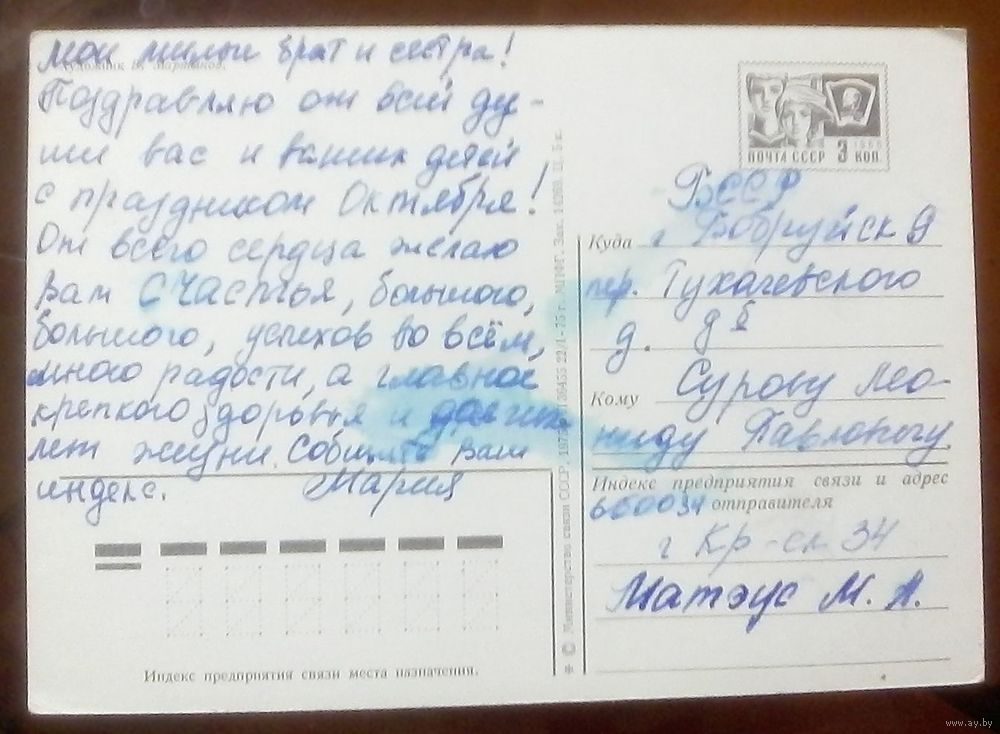 Мои милые брат и сестра!
Художник В. Мартынов.
Поздравляю от всей ду-
ши вас и ваших детей
с праздником Октября!
От всего сердца желаю
Вам счастья, большого,
большого, успехов во всём,
много радости, а главное
крепкого здоровья и долгих
лет жизни. Сообщите Ваш
индекс. Мария
Индекс предприятия связи места назначения.
ПОЧТА СССР 3 КОП.
1966
БССР
Куда г Бобруйск 9
пер. Тухачевского
д.
Кому Сурову Лео-
ниду Павловичу
Индекс предприятия связи и адрес
отправителя
660034
г Кр-ск 34
Матэус М. А.
© Министерство связи СССР.
www.ay.by